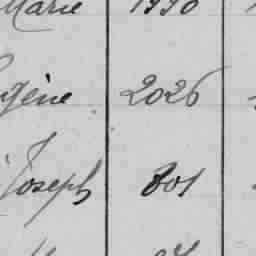 Marie 1990
gène 2026
Joseph 801